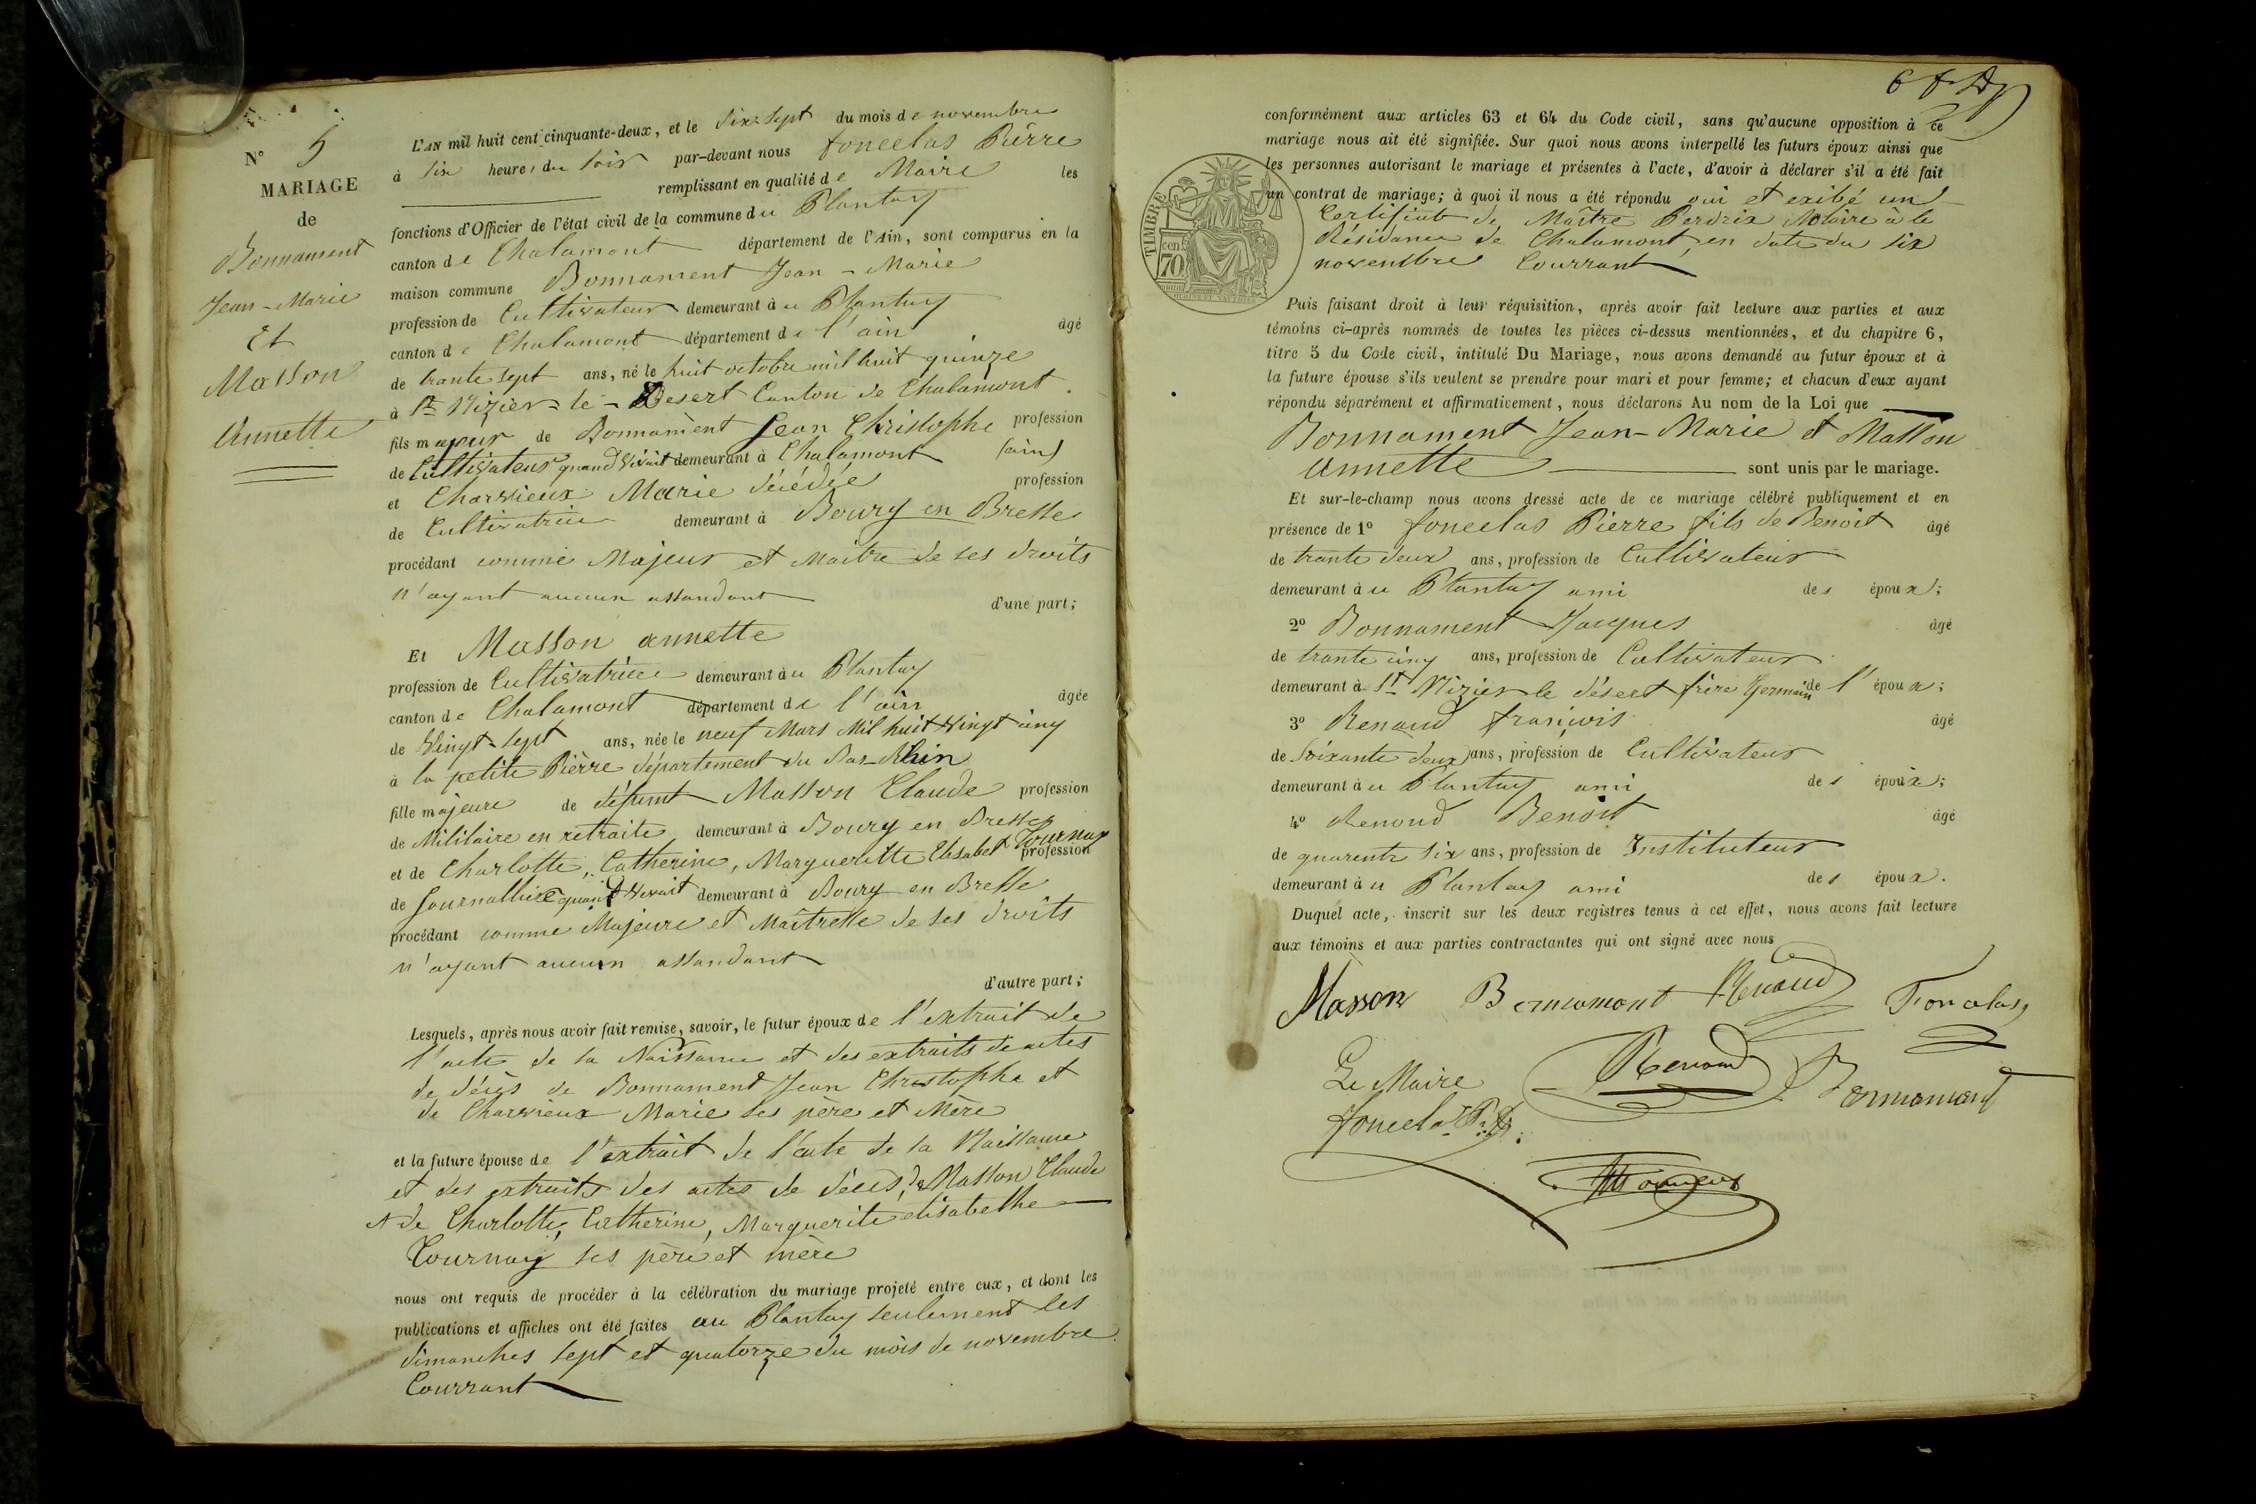 N° 5
MARIAGE
de
Bonnament
Jean-Marie
Et
Masson
Annette
L'AN mil huit cent cinquante-deux, et le dix-sept du mois de novembre
à six heures du soir par-devant nous fonclas Pièrre
remplissant en qualité de Maire les
fonctions d'Officier de l'état civil de la commune du Plantay
canton de Chalamont département de l'Ain, sont comparus en la
maison commune Bonnament Jean-Marie
profession de Cultivateur demeurant à u Plantay
canton de Chalamont département de l'ain âgé
de trante sept ans, né le huit octobre mil huit quinze
à St Nizier-le-Desert Canton de Chalamont.
fils majeur de Bonnament Jean Christophe profession
de Cultivateur quand vivait demeurant à Chalamont (ain)
et Charvieux Marie décédée profession
de Cultivatrice demeurant à Bourg en Bresse
procédant comme Majeur et Maitre de ses droits
n'ayant aucun assandant d'une part;
Et Masson annette
profession de Cultivatrice demeurant à u Plantay
canton de Chalamont département de l'ain âgée
de Vingt-sept ans, née le neuf Mars Mil huit Vingt cinq
à la petite Pièrre département du Bas-Rhin
fille majeure de défunt Masson Claude profession
de Militaire en retraite demeurant à Bourg en Bresse
et de Charlotte, Catherine, Margueritte Elisabet Tournay profession
de Journallière quand vivait demeurant à Bourg en Bresse
procédant comme Majeure et Maîtresse de ses droits
n'ayant aucun assandant
d'autre part;
Lesquels, après nous avoir fait remise, savoir, le futur époux de l'extrait de
l'acte de sa Naissance et des extraits de actes
de décès de Bonnament Jean Christophe et
de Charvieux Marie ses père et Mère
et la future épouse de l'extrait de l'acte de sa Naissance
et des extraits des actes de décès, de Masson Claude
et de Charlotte, Catherine, Marguerite elisabethe
Tournay ses père et mère
nous ont requis de procéder à la célébration du mariage projeté entre eux, et dont les
publications et affiches ont été faites au Plantay seulement les
dimanches sept et quatorze du mois de novembre
Courrant
conformément aux articles 63 et 64 du Code civil, sans qu'aucune opposition à ce
mariage nous ait été signifiée. Sur quoi nous avons interpellé les futurs époux ainsi que
les personnes autorisant le mariage et présentes à l'acte, d'avoir à déclarer s'il a été fait
un contrat de mariage; à quoi il nous a été répondu oui et exibé un
Certifiat de Maître Perdrix Notaire à la
Résidance de Chalamont, en date du six
novembre Courrant
TIMBRE
cen
70
Puis faisant droit à leur réquisition, après avoir fait lecture aux parties et aux
témoins ci-après nommés de toutes les pièces ci-dessus mentionnées, et du chapitre 6,
titre 5 du Code civil, intitulé Du Mariage, nous avons demandé au futur époux et à
la future épouse s'ils veulent se prendre pour mari et pour femme; et chacun d'eux ayant
répondu séparément et affirmativement, nous déclarons Au nom de la Loi que
Bonnament Jean-Marie et Masson
Annette sont unis par le mariage.
Et sur-le-champ nous avons dressé acte de ce mariage célébré publiquement et en
présence de 1° fonclas Pierre fils de Benoit âgé
de trante deux ans, profession de Cultivateur
demeurant à u Plantay ami des époux;
2° Bonnament Jacques âgé
de trante cinq ans, profession de Cultivateur
demeurant à St Nizier le désert frère Germain de l'époux;
3° Renaud françois âgé
de soixante deux ans, profession de Cultivateur
demeurant à u Plantay ami des époux;
4° Renoud Benoit âgé
de quarente six ans, profession de Instituteur
demeurant à u Plantay ami des époux.
Duquel acte, inscrit sur les deux registres tenus à cet effet, nous avons fait lecture
aux témoins et aux parties contractantes qui ont signé avec nous
Masson Bonnamont Renaud Fonclas
Le Maire Renoud Bonnamant
fonclas